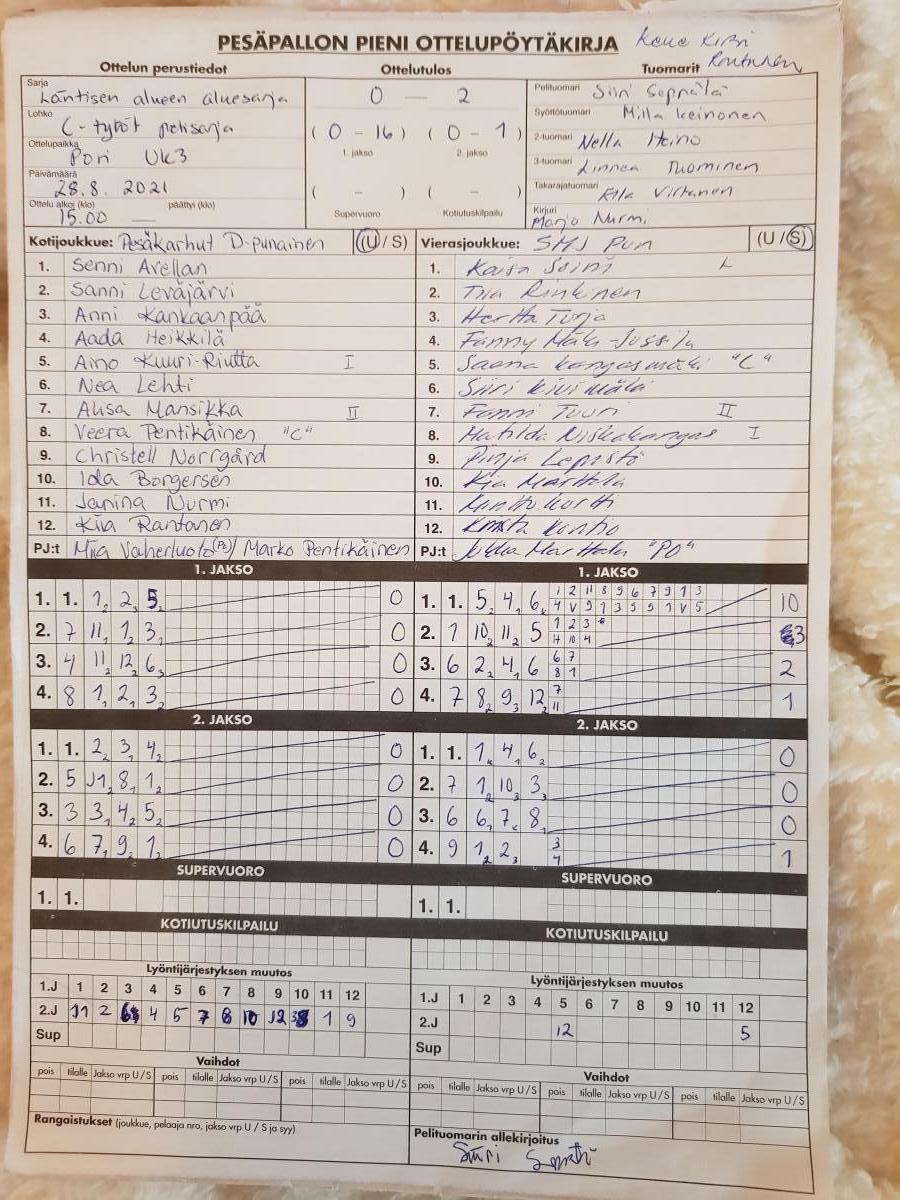 PESÄPALLON PIENI OTTELUPÖYTÄKIRJA
Ottelun perustiedot
Ottelutulos
Tuomarit
Sarja Läntisen alueen aluesarja
Lohko C-tytöt pelisarja
Ottelupaikka Pori Uk3
Päivämäärä 28.8. 2021
Ottelu alkoi (klo) 15.00 — päättyi (klo)
0 — 2
( 0 - 16 ) ( 0 - 1 )
1. jakso 2. jakso
( - ) ( - )
Supervuoro Kotiutuskilpailu
Pelituomari Siiri Seppälä
Syöttötuomari Milla Keinonen
2-tuomari Nella Heino
3-tuomari Linnea Tuominen
Takarajatuomari Ella Virtanen
Kirjuri Marjo Nurmi
Kotijoukkue: Pesäkarhut D-punainen (U / S)
1. Senni Avellan
2. Sanni Leväjärvi
3. Anni Kankaanpää
4. Aada Heikkilä
5. Aino Kuuri-Riutta I
6. Nea Lehti
7. Alisa Mansikka II
8. Veera Pentikäinen "C"
9. Christell Norrgård
10. Ida Borgersen
11. Janina Nurmi
12. Kiia Rantanen
PJ:t Miia Vaherluoto (PO) / Marko Pentikäinen
Vierasjoukkue: SMJ Pun (U / S)
1. Kaisa Soini L
2. Tiia Rinkinen
3. Hertta Turja
4. Fanny Mäki-Jussila
5. Saana Kangasmäki "C"
6. Siiri Kivimäki
7. Fanni Tuuri II
8. Matilda Niskakangas I
9. Pinja Lepistö
10. Kia Marttala
11. Minttu Kortti
12.
PJ:t Jukka Marttala "PO"
1. JAKSO
1. 1. 1 2 2 2 5 2 0
2. 7 11 1 1 2 3 1 0
3. 4 11 1 12 2 6 3 0
4. 8 1 1 2 1 3 2 0
2. JAKSO
1. 1. 2 2 3 1 4 2 0
2. 5 11 1 8 1 1 2 0
3. 3 3 1 4 2 5 2 0
4. 6 7 1 9 2 1 2 0
SUPERVUORO
1. 1.
KOTIUTUSKILPAILU
1. JAKSO
1. 1. 5 2 4 1 6 10
2. 1 10 2 11 2 5 3
3. 6 2 2 4 1 6 2
4. 7 8 2 9 3 12 2 1
2. JAKSO
1. 1. 1 4 1 6 2 0
2. 7 1 2 10 3 3 3 0
3. 6 6 1 7 8 1 0
4. 9 1 2 2 3 1
SUPERVUORO
1. 1.
KOTIUTUSKILPAILU
Lyöntijärjestyksen muutos
1.J 1 2 3 4 5 6 7 8 9 10 11 12
2.J 11 2 6 4 5 7 8 10 12 3 1 9
Sup
Vaihdot
pois tilalle Jakso vrp U / S pois tilalle Jakso vrp U / S pois tilalle Jakso vrp U / S
Rangaistukset (joukkue, pelaaja nro, jakso vrp U / S ja syy)
Lyöntijärjestyksen muutos
1.J 1 2 3 4 5 6 7 8 9 10 11 12
2.J 12 5
Sup
Vaihdot
pois tilalle Jakso vrp U / S pois tilalle Jakso vrp U / S pois tilalle Jakso vrp U / S
Pelituomarin allekirjoitus
Siiri